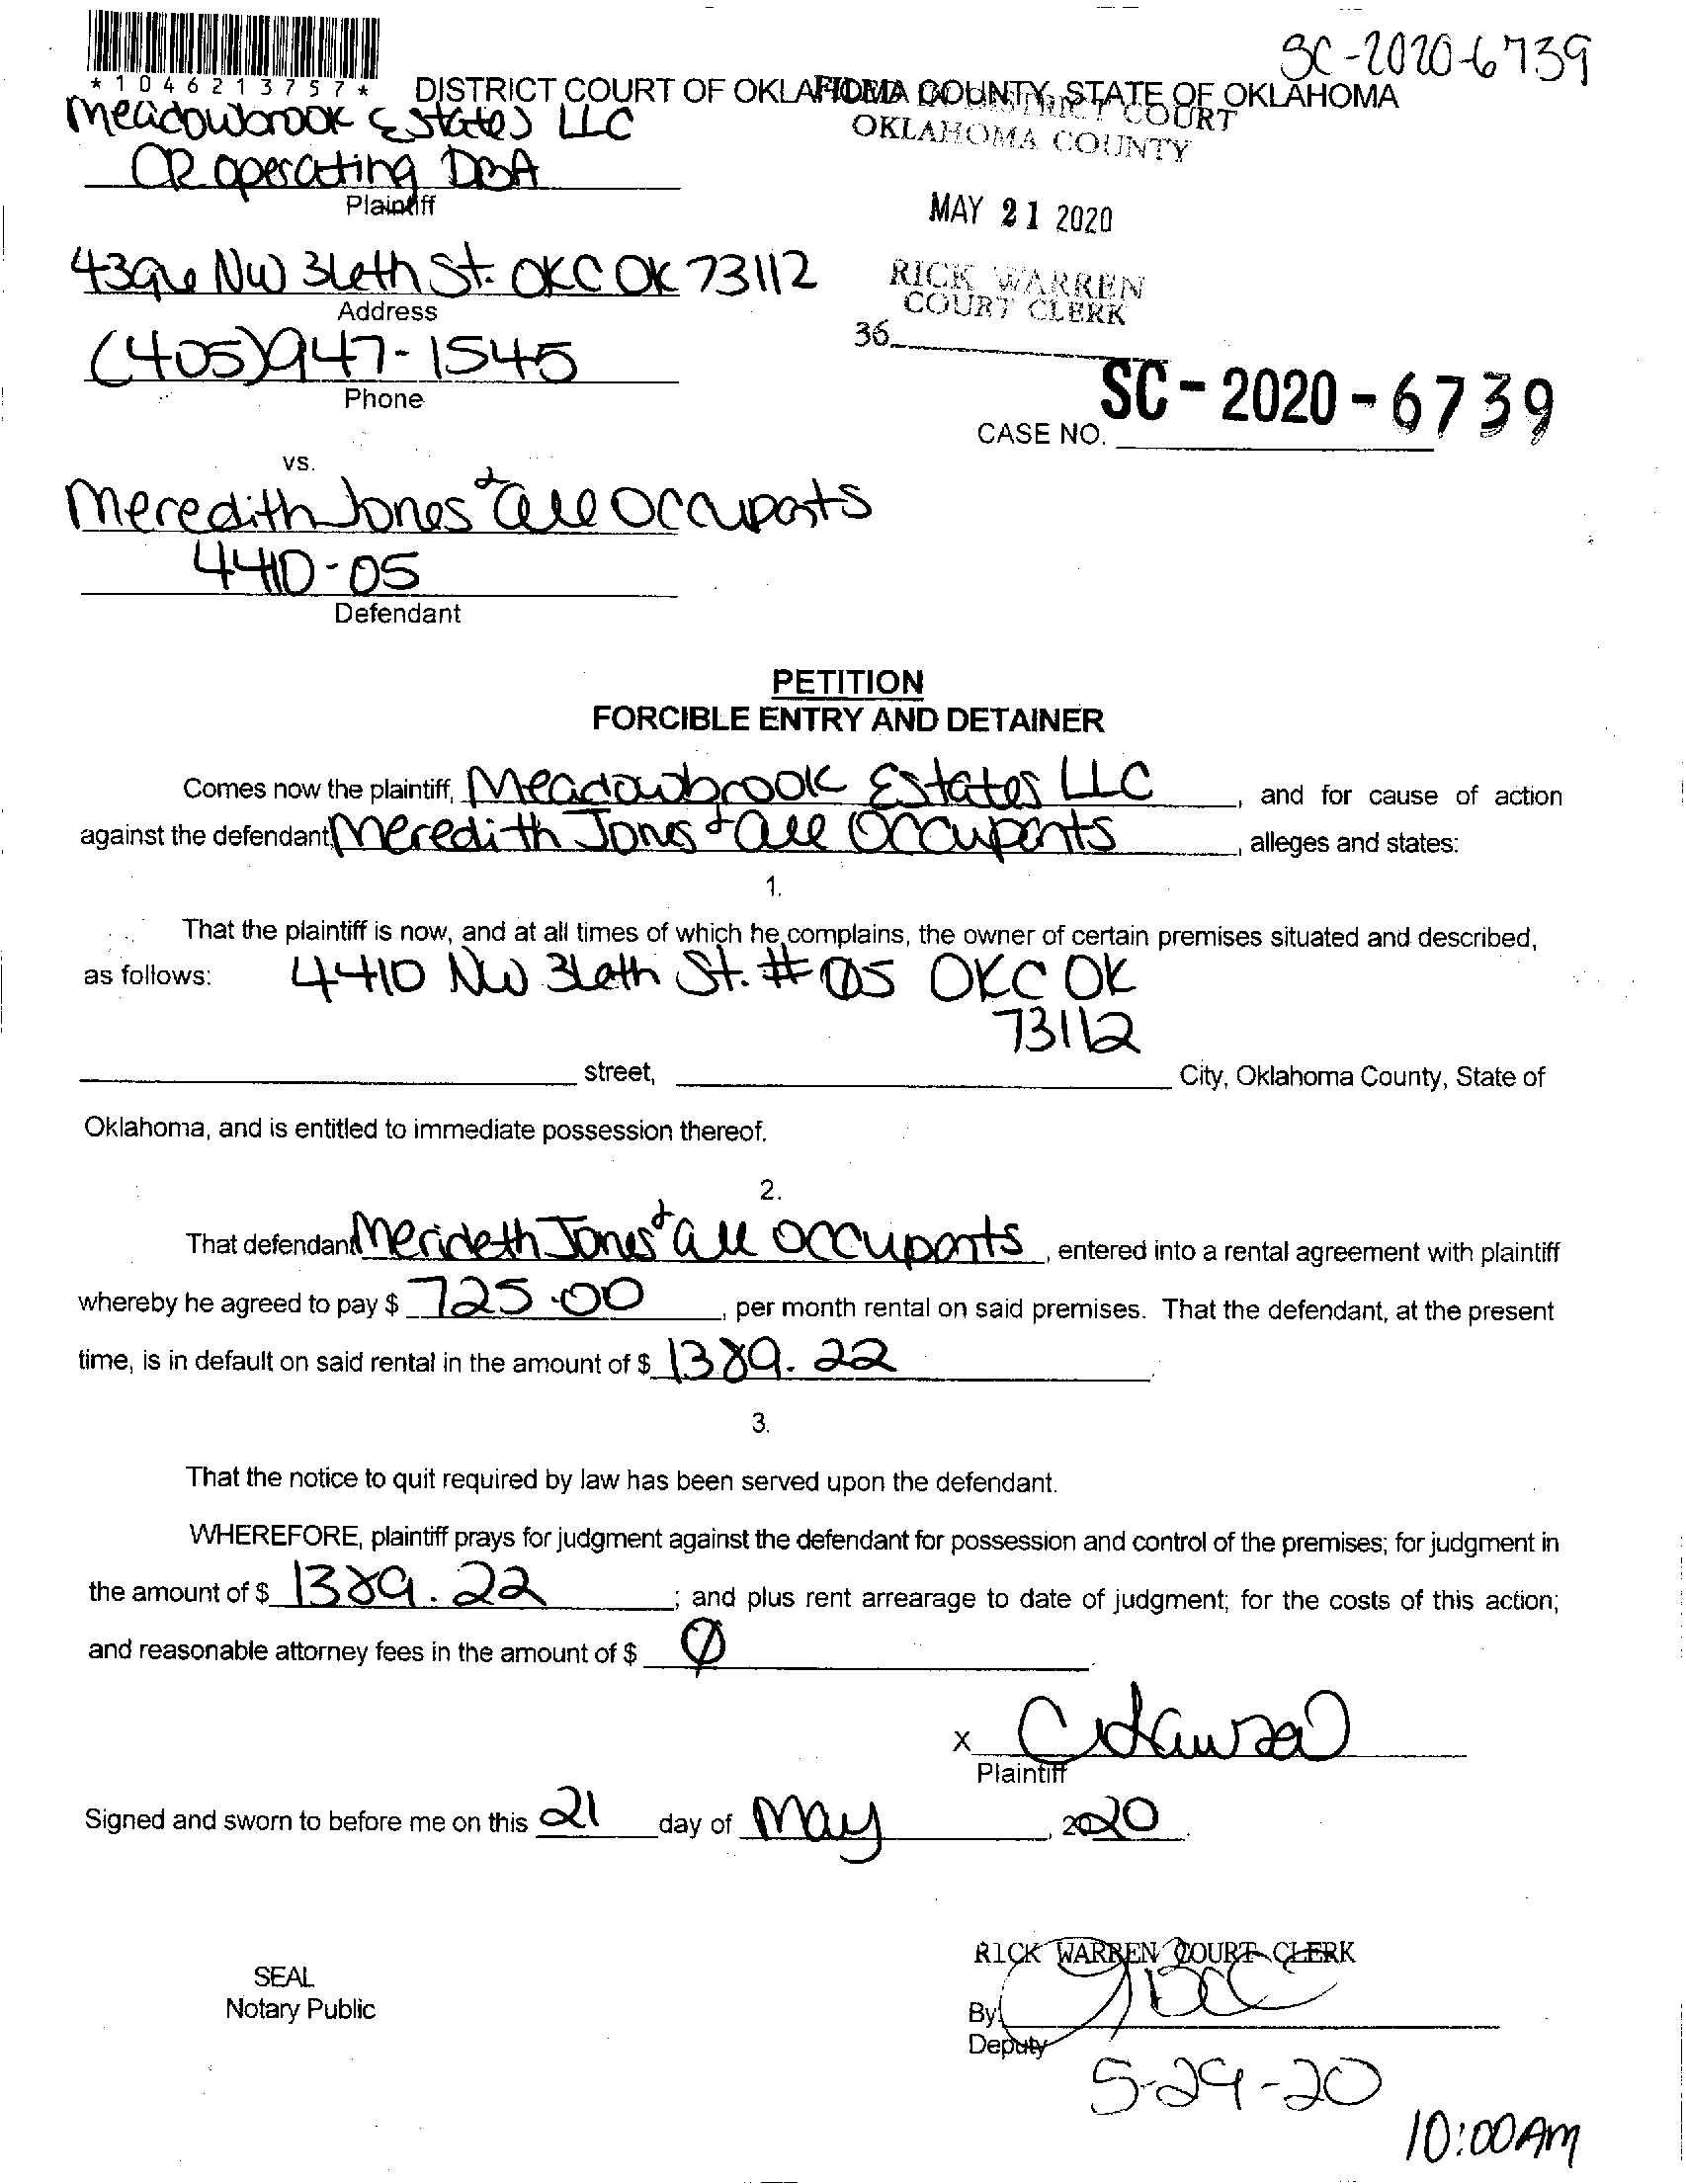 SC-2020-6739
*1046213757*
DISTRICT COURT OF OKLAHOMA COUNTY, STATE OF OKLAHOMA
Meadowbrook Estates LLC
CR operating DBA
Plaintiff
DISTRICT COURT
OKLAHOMA COUNTY
MAY 21 2020
4396 NW 36th St. OKC OK 73112
Address
RICK WARREN
COURT CLERK
36
(405)947-1545
Phone
CASE NO. SC-2020-6739
vs.
Meredith Jones & all occupants
4410-05
Defendant
PETITION
FORCIBLE ENTRY AND DETAINER
Comes now the plaintiff, Meadowbrook Estates LLC, and for cause of action
against the defendant Meredith Jones & all Occupants, alleges and states:
1.
That the plaintiff is now, and at all times of which he complains, the owner of certain premises situated and described,
as follows: 4410 NW 36th St. #05 OKC OK
73112
street, City, Oklahoma County, State of
Oklahoma, and is entitled to immediate possession thereof.
2.
That defendant Merideth Jones & all occupants, entered into a rental agreement with plaintiff
whereby he agreed to pay $ 725.00, per month rental on said premises. That the defendant, at the present
time, is in default on said rental in the amount of $ 1389.22.
3.
That the notice to quit required by law has been served upon the defendant.
WHEREFORE, plaintiff prays for judgment against the defendant for possession and control of the premises; for judgment in
the amount of $ 1389.22; and plus rent arrearage to date of judgment; for the costs of this action;
and reasonable attorney fees in the amount of $ Ø
X
Plaintiff
Signed and sworn to before me on this 21 day of May, 2020
RICK WARREN COURT CLERK
SEAL
Notary Public
By:
Deputy
5-29-20
10:00AM